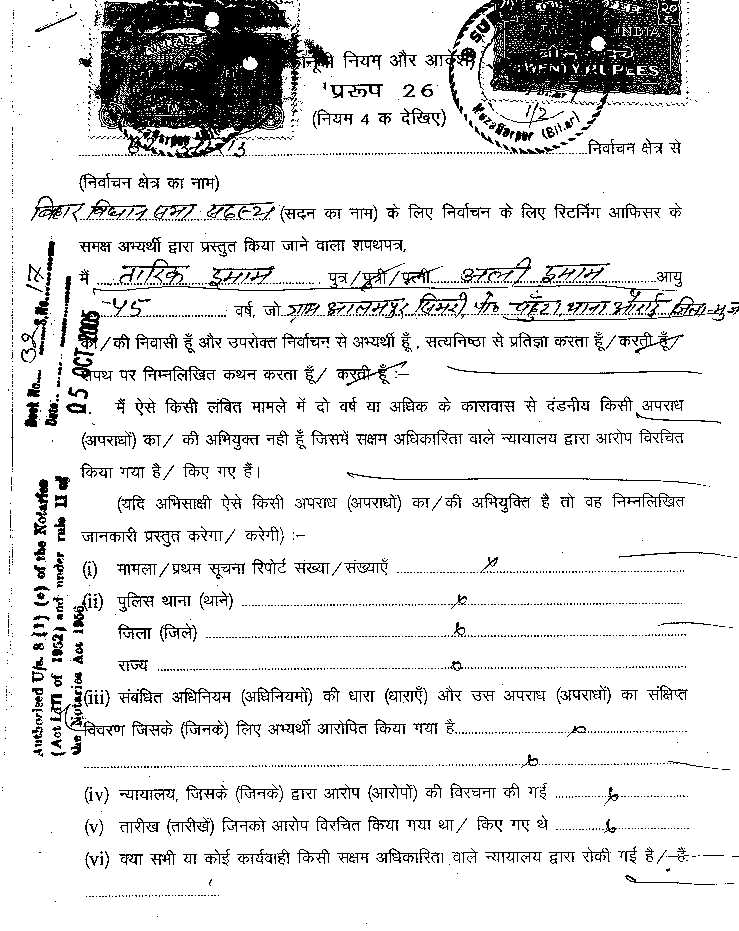 नियम और आदेश
प्ररूप 26
(नियम 4 क देखिए)
TWENTY RUPEES
INDIA
1/2
Mozaffarpur (Bihar)
निर्वाचन क्षेत्र से
(निर्वाचन क्षेत्र का नाम)
बिहार विधान सभा सदस्य (सदन का नाम) के लिए निर्वाचन के लिए रिटर्निंग आफिसर के
समक्ष अभ्यर्थी द्वारा प्रस्तुत किया जाने वाला शपथपत्र,
मैं तारिक इमाम पुत्र/पुत्री/पत्नी अली इमाम आयु
45 वर्ष, जो ग्राम आलमपुर सिमरी, पो० थाना औराई जिला-मुज
का/की निवासी हूँ और उपरोक्त निर्वाचन से अभ्यर्थी हूँ, सत्यनिष्ठा से प्रतिज्ञा करता हूँ/करती हूँ/
शपथ पर निम्नलिखित कथन करता हूँ/ करती हूँ :–
मैं ऐसे किसी लंबित मामले में दो वर्ष या अधिक के कारावास से दंडनीय किसी अपराध
(अपराधों) का/ की अभियुक्त नही हूँ जिसमें सक्षम अधिकारिता वाले न्यायालय द्वारा आरोप विरचित
किया गया है/ किए गए हैं।
(यदि अभिसाक्षी ऐसे किसी अपराध (अपराधों) का/की अभियुक्ति है तो वह निम्नलिखित
जानकारी प्रस्तुत करेगा/ करेगी) :–
(i) मामला/प्रथम सूचना रिपोर्ट संख्या/संख्याएँ ✗
(ii) पुलिस थाना (थाने)
जिला (जिले)
राज्य
(iii) संबंधित अधिनियम (अधिनियमों) की धारा (धाराएँ) और उस अपराध (अपराधों) का संक्षिप्त
विवरण जिसके (जिनके) लिए अभ्यर्थी आरोपित किया गया है
(iv) न्यायालय, जिसके (जिनके) द्वारा आरोप (आरोपों) की विरचना की गई
(v) तारीख (तारीखें) जिनको आरोप विरचित किया गया था/ किए गए थे
(vi) क्या सभी या कोई कार्यवाही किसी सक्षम अधिकारिता वाले न्यायालय द्वारा रोकी गई है/ हैं
Book No. 32 S.No. 17
Date 05 OCT 2005
Authorised U/s. 8 (1) (e) of the Notaries
(Act LIII of 1952) and under rule II of
the Notaries Act 1956